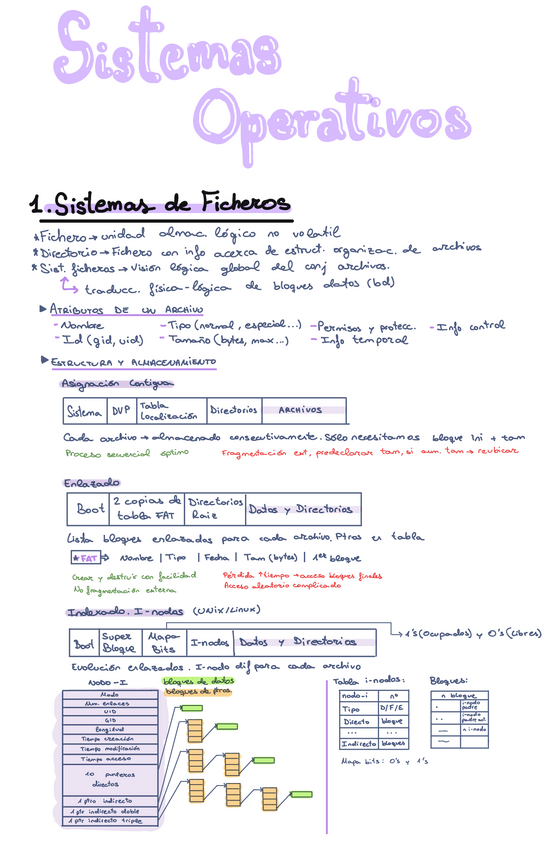 Sistemas
Operativos
1. Sistemas de Ficheros
*Fichero → unidad almac. lógico no volatil
*Directorio → Fichero con info acerca de estruct. organizac. de archivos
*Sist. ficheros → Visión lógica global del conj archivos.
traducc. física-lógica de bloques datos (bd)
ATRIBUTOS DE UN ARCHIVO
- Nombre - Tipo (normal, especial...) - Permisos y protecc. - Info control
- Id (gid, uid) - Tamaño (bytes, max...) - Info temporal
ESTRUCTURA Y ALMACENAMIENTO
Asignación Contigua
Sistema | DVP | Tabla Localización | Directorios | ARCHIVOS
Cada archivo → almacenado consecutivamente. Sólo necesitamos bloque ini + tam
Proceso secuencial óptimo Fragmentación ext, predeclarar tam, si aum. tam → reubicar
Enlazado
Boot | 2 copias de tabla FAT | Directorios Raiz | Datos y Directorios
Lista bloques enlazados para cada archivo. Ptros en tabla
*FAT Nombre | Tipo | Fecha | Tam (bytes) | 1er bloque
Crear y destruir con facilidad Pérdida ↑tiempo → acceso bloques finales
No fragmentación externa Acceso aleatorio complicado
Indexado. I-nodos (UNIX/Linux)
Boot | Super Bloque | Mapa Bits | I-nodos | Datos y Directorios
→ 1's (Ocupados) y 0's (Libres)
Evolución enlazados. I-nodo dif para cada archivo
NODO-I
Modo
Num. enlaces
UID
GID
Longitud
Tiempo creación
Tiempo modificación
Tiempo acceso
10 punteros
directos
1 ptro indirecto
1 ptr indirecto doble
1 ptr indirecto triple
bloques de datos
bloques de ptros.
Tabla i-nodos:
nodo-i | nº
Tipo | D/F/E
Directo | bloque
... | ...
Indirecto | bloques
Mapa bits: 0's y 1's
Bloques:
n bloque
. | i-nodo padre
.. | i-nodo padre
— | n i-nodo
—